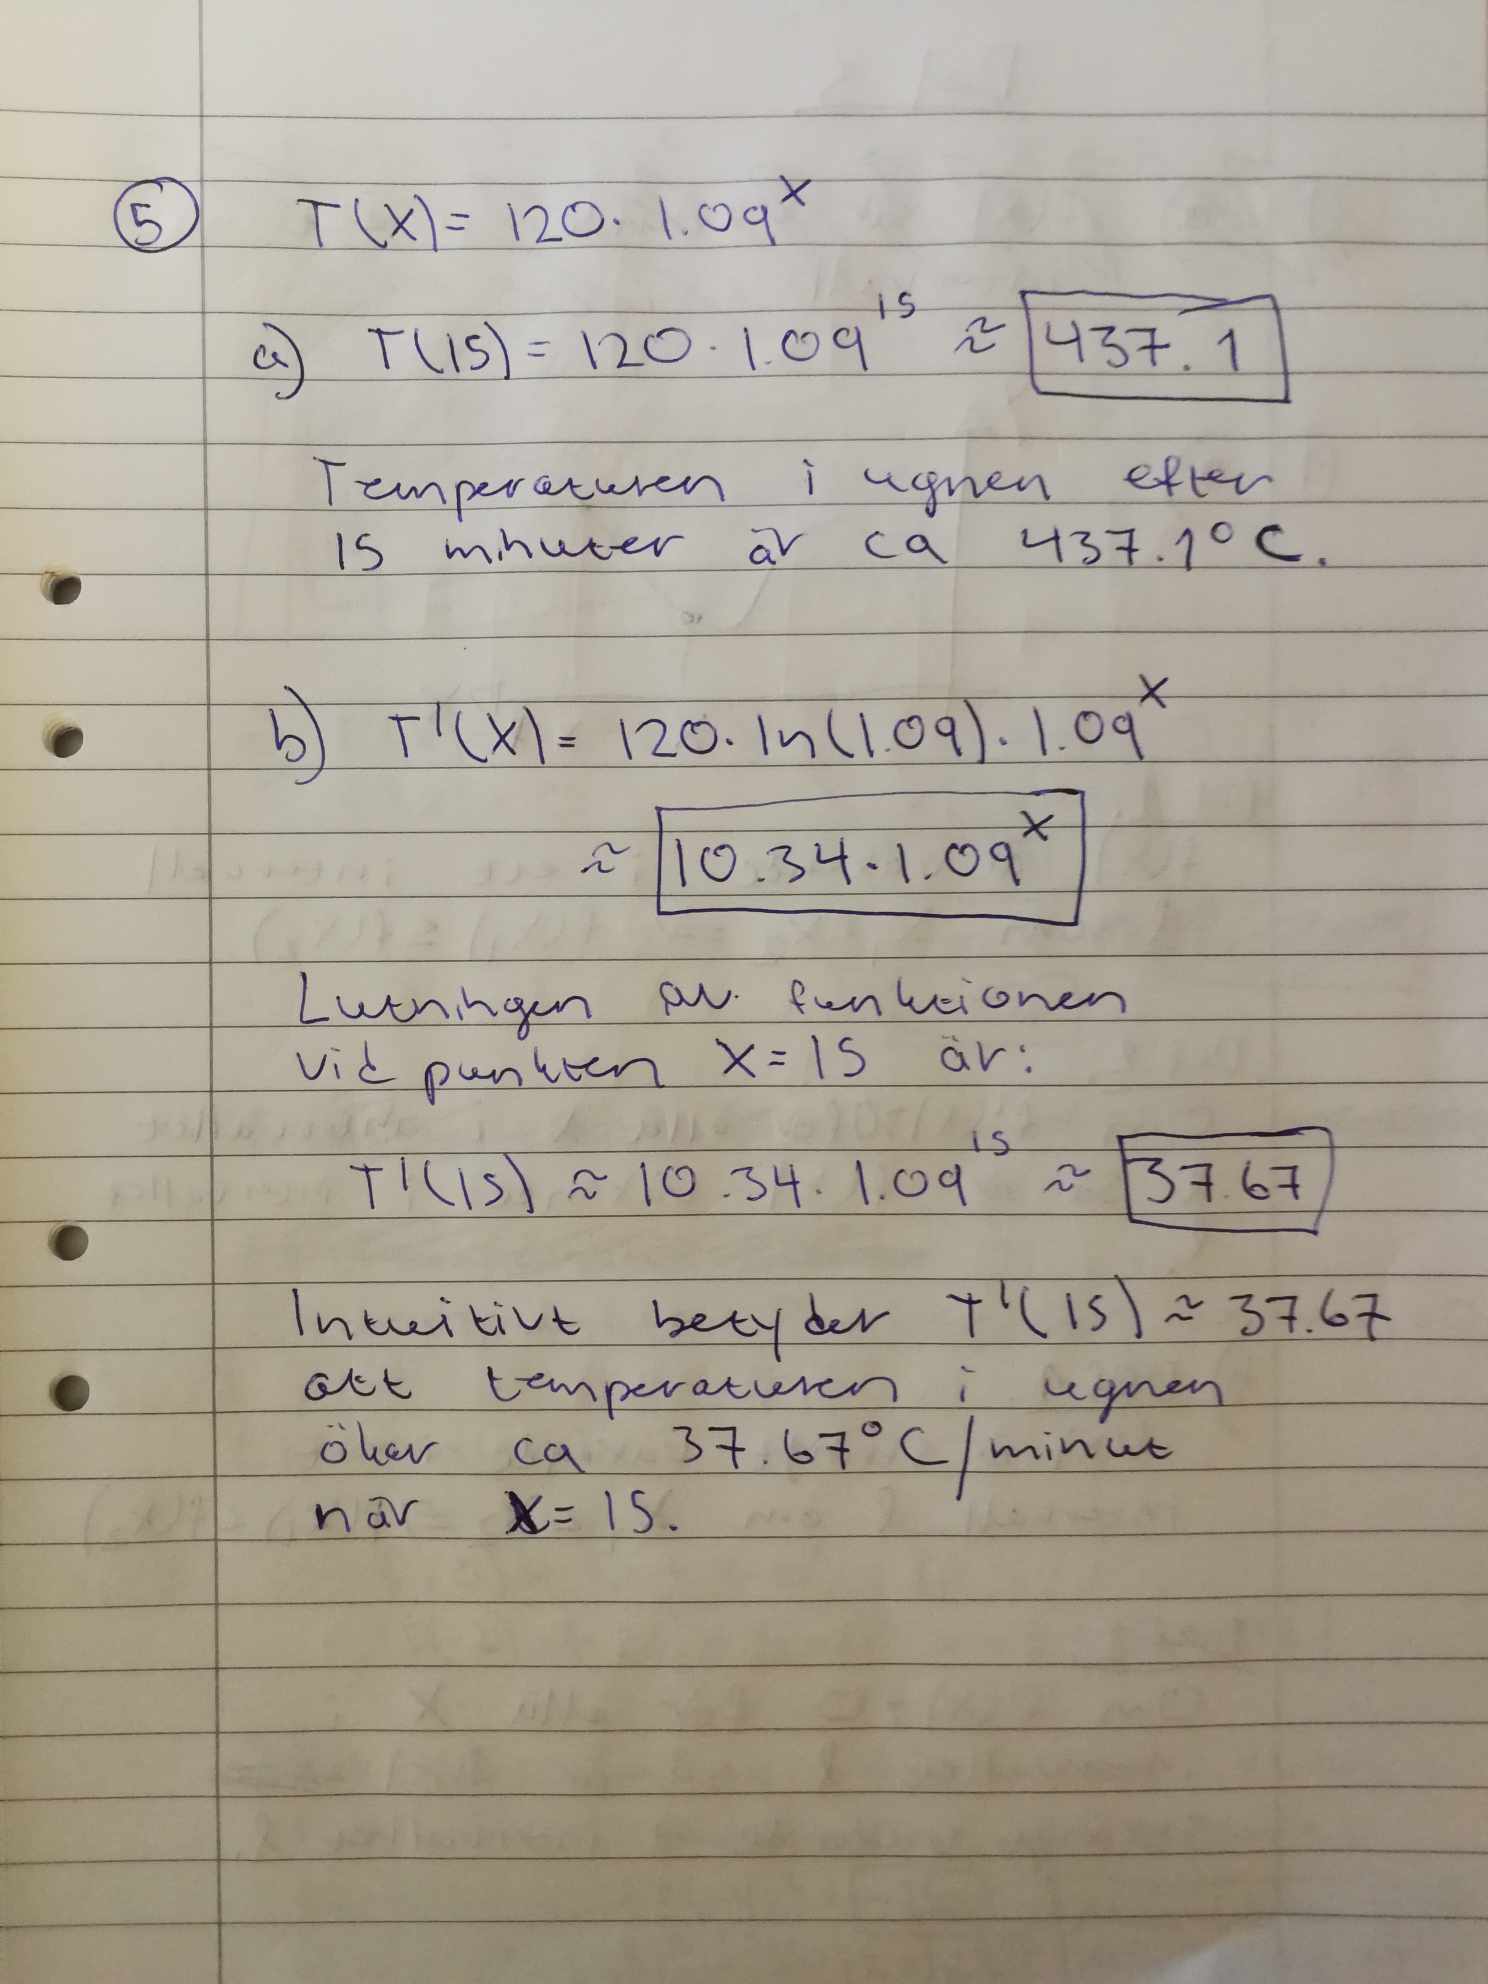 5 T(X)= 120· 1.09^x
a) T(15) = 120 · 1.09^15 ≈ 437.1
Temperaturen i ugnen efter
15 minuter är ca 437.1°C.
b) T'(X)= 120· ln(1.09) · 1.09^x
≈ 10.34 · 1.09^x
Lutningen av funktionen
vid punkten X=15 är:
T'(15) ≈ 10.34 · 1.09^15 ≈ 37.67
Intuitivt betyder T'(15) ≈ 37.67
att temperaturen i ugnen
ökar ca 37.67°C/minut
när X=15.